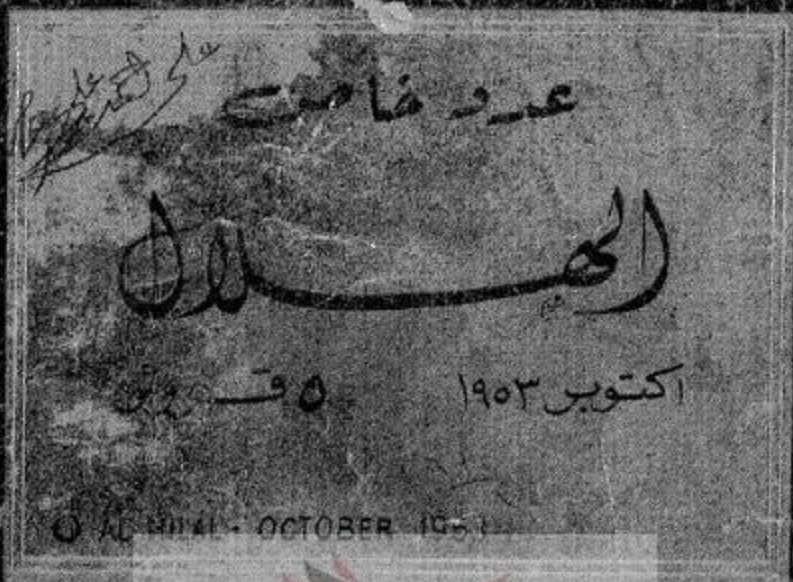 عدد خاص
الهلال
اكتوبر ١٩٥٣
٥ قروش
AL HILAL - OCTOBER 195